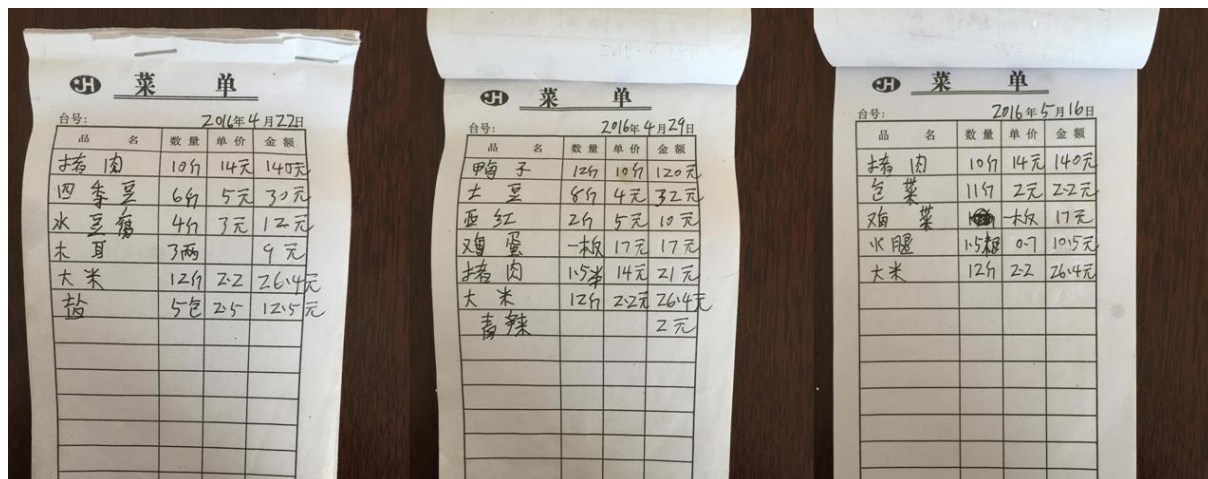 JH 菜 单
台号: 2016年4月22日
品 名 数量 单价 金额
猪肉 10斤 14元 140元
四季豆 6斤 5元 30元
水豆腐 4斤 3元 12元
木耳 3两 9元
大米 12斤 2.2 26.4元
盐 5包 2.5 12.5元
JH 菜 单
台号: 2016年4月29日
品 名 数量 单价 金额
鸭子 12斤 10斤 120元
土豆 8斤 4元 32元
西红 2斤 5元 10元
鸡蛋 一板 17元 17元
猪肉 1.5斤 14元 21元
大米 12斤 2.2元 26.4元
青辣 2元
JH 菜 单
台号: 2016年5月16日
品 名 数量 单价 金额
猪肉 10斤 14元 140元
包菜 11斤 2元 22元
鸡菜 一板 17元
火腿 15根 0.7 10.5元
大米 12斤 2.2 26.4元